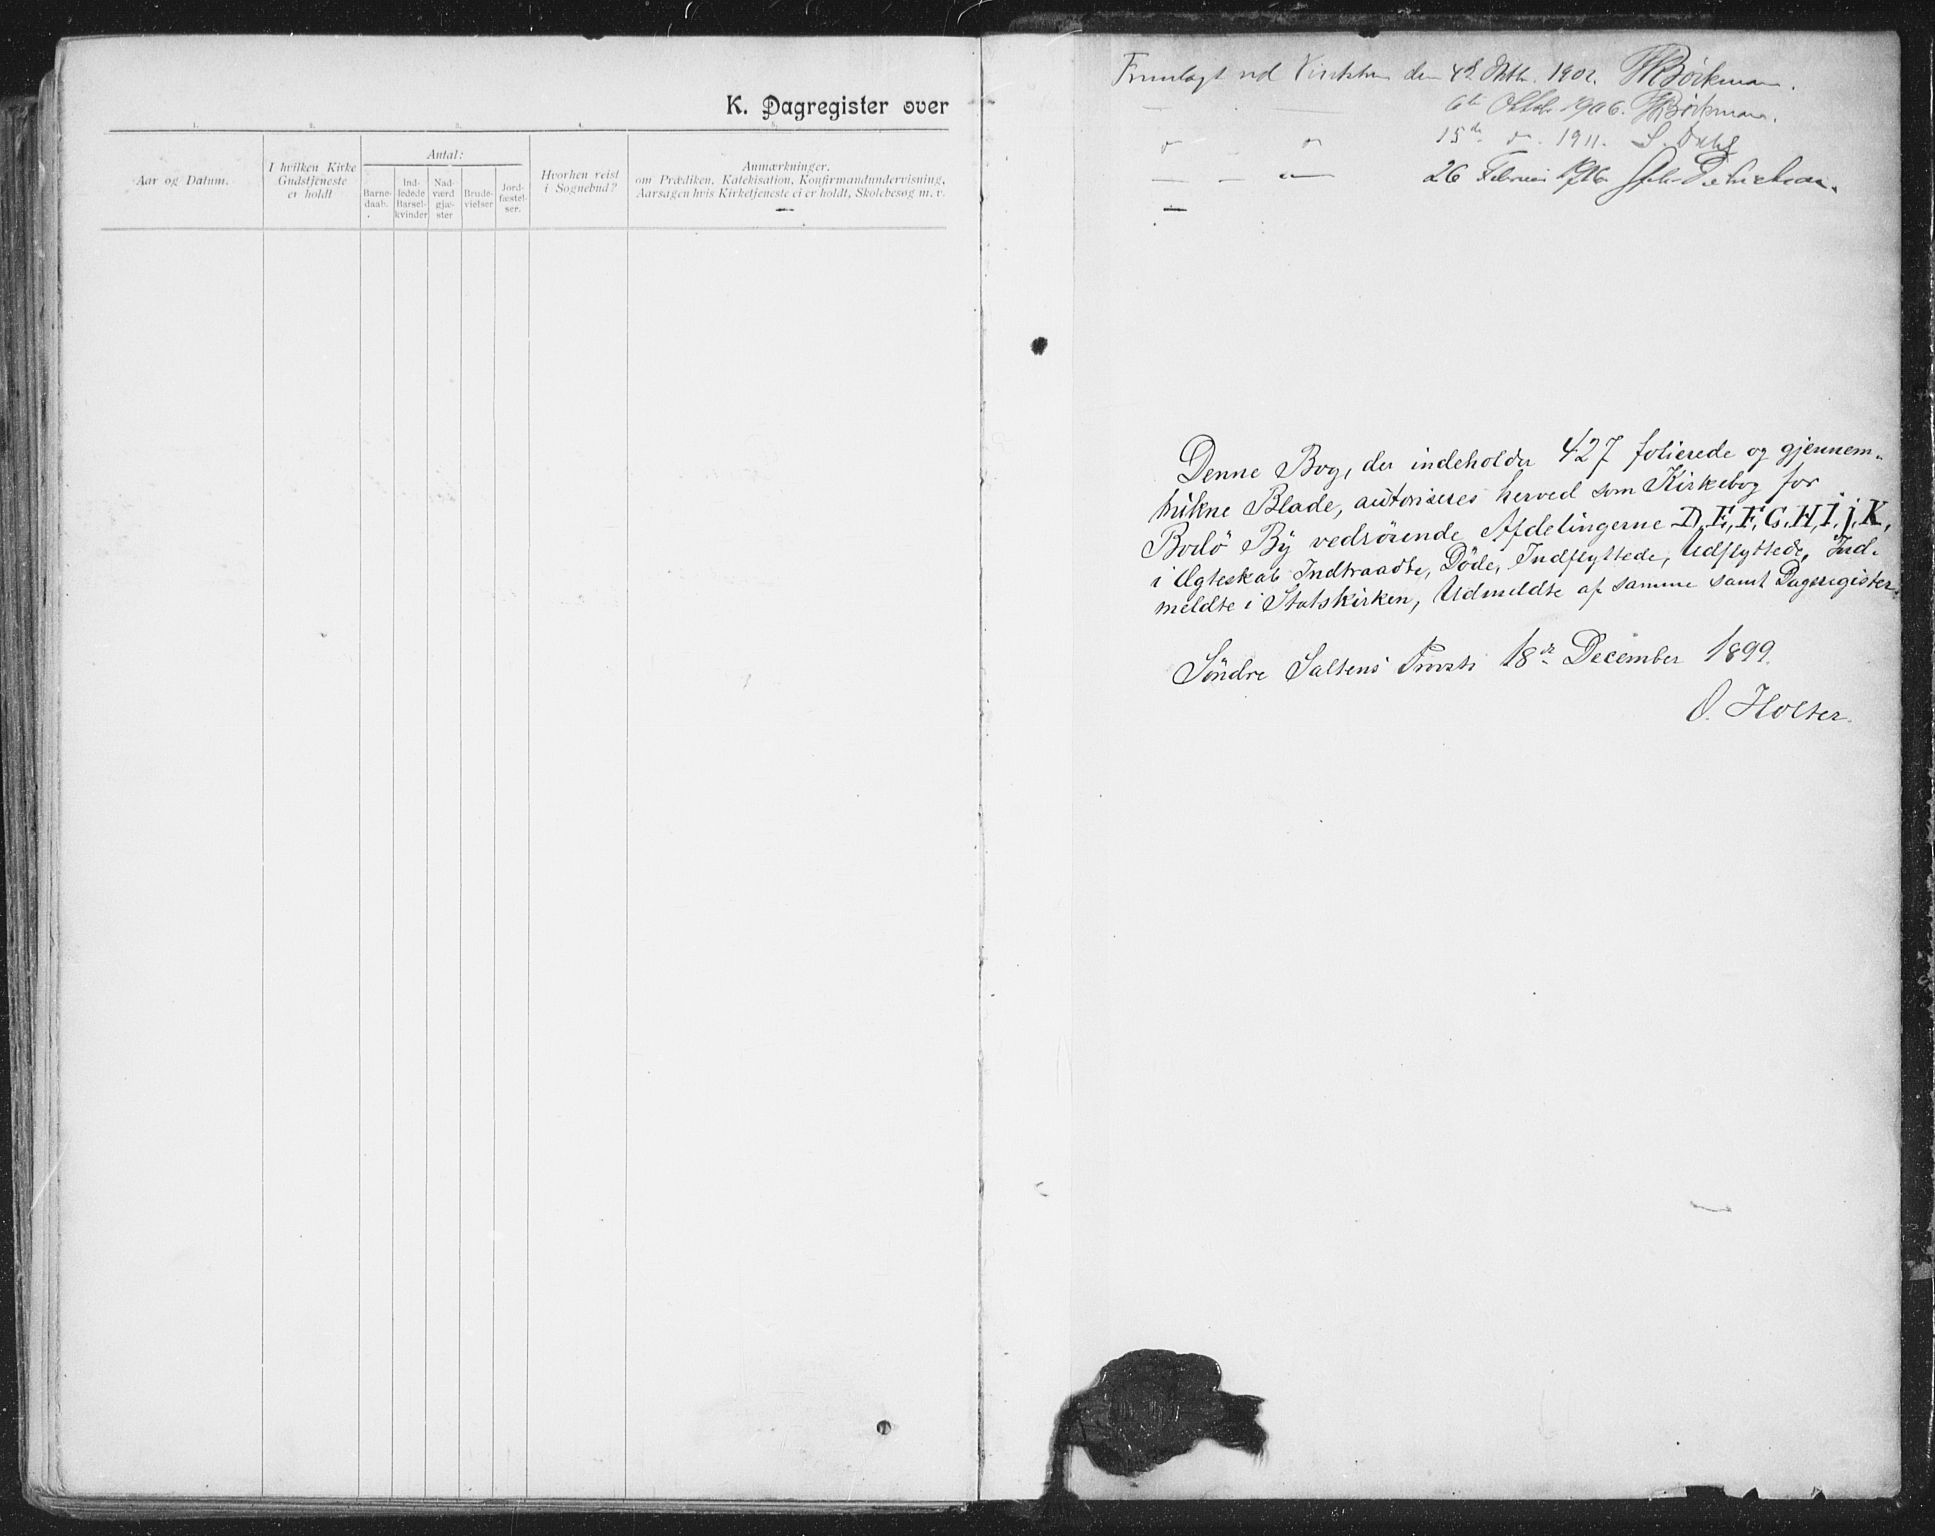 K. Dagregister over
1. 2. 3. 4. 5.
Aar og Datum.
I hvilken Kirke
Gudstjeneste
er holdt
Antal:
Barne-
daab.
Ind-
ledede
Barsel-
kvinder
Nad-
værd
gjæ-
ster
Brude-
vielser
Jord-
fæstel-
ser.
Hvorhen reist
i Sognebud?
Anmærkninger.
om Prædiken, Katekisation, Konfirmandundervisning,
Aarsagen hvis Kirketjeneste ei er holdt, Skolebesøg m. v.
Fremlagt ved den 4de 1902. Bøckman.
6te Oktob. 1906. Bøckman.
15de do. 1911. S. Dahl
26 Februar 1916.
Denne Bog, der indeholder 427 folierede og gjennem-
trukne Blade, autoriseres herved som Kirkebog for
Bodö By vedrörende Afdelingerne D, E, F, G, H, I, J, K,
i Ægteskab Indtraadte, Döde, Indflyttede, Udflyttede, Ind-
meldte i Statskirken, Udmeldte af samme samt Dagsregister.
Söndre Saltens Provsti 18de December 1899.
O. Holter.